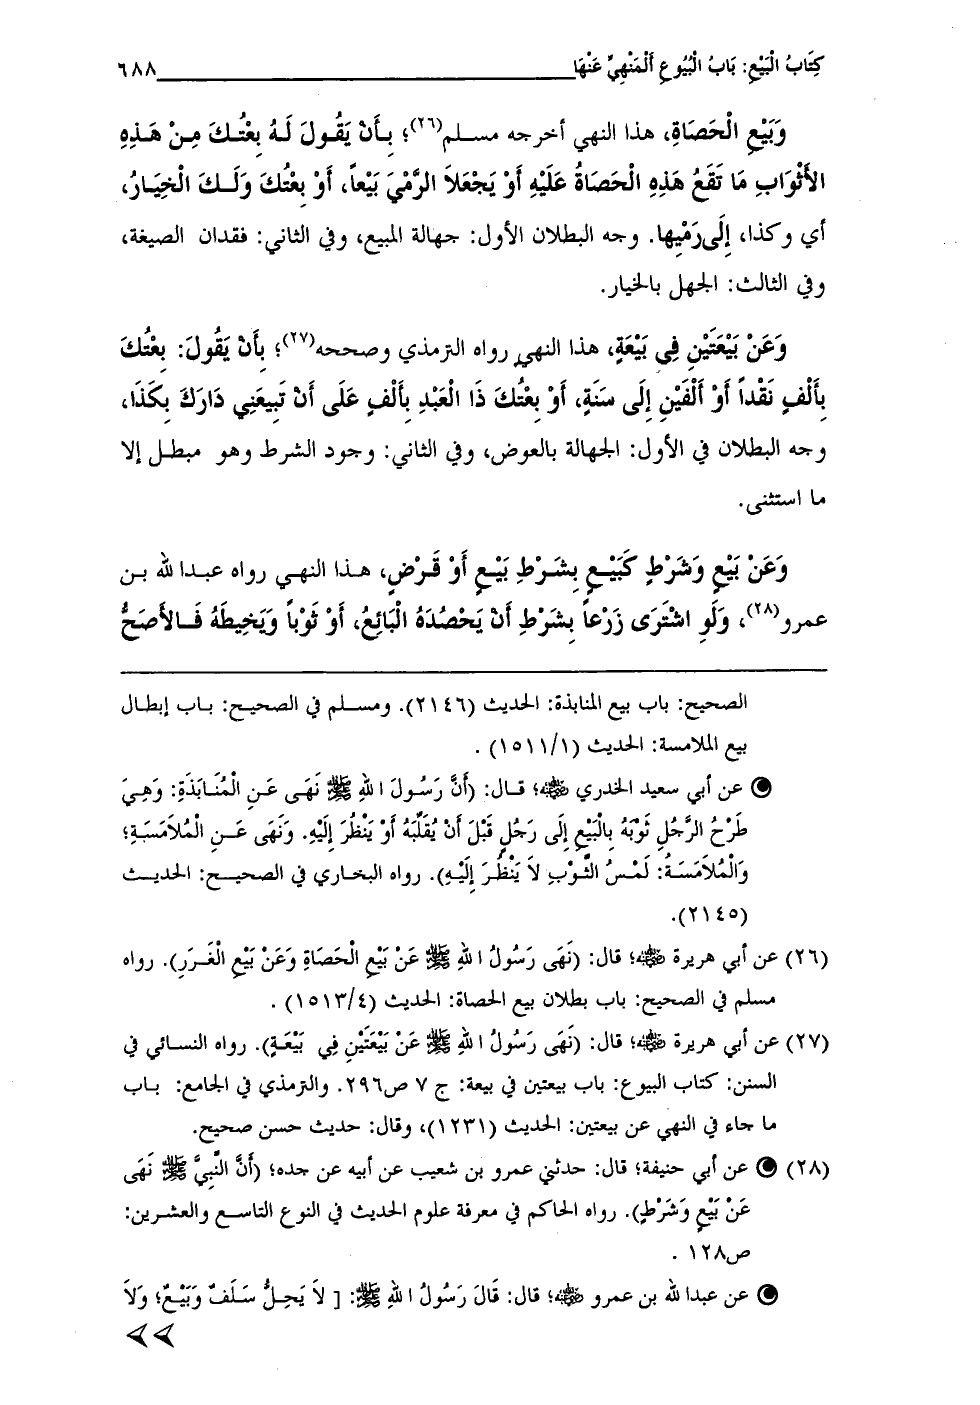 كِتَابُ الْبَيْعِ: بَابُ الْبُيُوعِ الْمَنْهِيِّ عَنْهَا ٦٨٨
وَبَيْعِ الْحَصَاةِ، هذا النهي أخرجه مسلم(٢٦)؛ بِأَنْ يَقُولَ لَهُ بِعْتُكَ مِنْ هَذِهِ
الأَثْوَابِ مَا تَقَعُ هَذِهِ الْحَصَاةُ عَلَيْهِ أَوْ يَجْعَلاَ الرَّمْيَ بَيْعاً، أَوْ بِعْتُكَ وَلَكَ الْخِيَارُ،
أي وكذا، إِلَى رَمْيِهَا. وجه البطلان الأول: جهالة المبيع، وفي الثاني: فقدان الصيغة،
وفي الثالث: الجهل بالخيار.
وَعَنْ بَيْعَتَيْنِ فِي بَيْعَةٍ، هذا النهي رواه الترمذي وصححه(٢٧)؛ بِأَنْ يَقُولَ: بِعْتُكَ
بِأَلْفٍ نَقْداً أَوْ أَلْفَيْنِ إِلَى سَنَةٍ، أَوْ بِعْتُكَ ذَا الْعَبْدِ بِأَلْفٍ عَلَى أَنْ تَبِيعَنِي دَارَكَ بِكَذَا،
وجه البطلان في الأول: الجهالة بالعوض، وفي الثاني: وجود الشرط وهو مبطل إلا
ما استثنى.
وَعَنْ بَيْعٍ وَشَرْطٍ كَبَيْعٍ بِشَرْطِ بَيْعٍ أَوْ قَرْضٍ، هذا النهي رواه عبدا لله بن
عمرو(٢٨)، وَلَوِ اشْتَرَى زَرْعاً بِشَرْطِ أَنْ يَحْصُدَهُ الْبَائِعُ، أَوْ ثَوْباً وَيَخِيطَهُ فَالأَصَحُّ
الصحيح: باب بيع المنابذة: الحديث (٢١٤٦). ومسلم في الصحيح: باب إبطال
بيع الملامسة: الحديث (١٥١١/١) .
عن أبي سعيد الخدري ﷺ؛ قال: (أَنَّ رَسُولَ ا للهِ ﷺ نَهَى عَنِ الْمُنَابَذَةِ: وَهِيَ
طَرْحُ الرَّجُلِ ثَوْبَهُ بِالْبَيْعِ إِلَى رَجُلٍ قَبْلَ أَنْ يُقَلِّبَهُ أَوْ يَنْظُرَ إِلَيْهِ. وَنَهَى عَنِ الْمُلاَمَسَةِ؛
وَالْمُلاَمَسَةُ: لَمْسُ الثَّوْبِ لاَ يَنْظُرُ إِلَيْهِ). رواه البخاري في الصحيح: الحديث
(٢١٤٥).
(٢٦) عن أبي هريرة ؓ؛ قال: (نَهَى رَسُولُ ا للهِ ﷺ عَنْ بَيْعِ الْحَصَاةِ وَعَنْ بَيْعِ الْغَرَرِ). رواه
مسلم في الصحيح: باب بطلان بيع الحصاة: الحديث (١٥١٣/٤) .
(٢٧) عن أبي هريرة ؓ؛ قال: (نَهَى رَسُولُ ا للهِ ﷺ عَنْ بَيْعَتَيْنِ فِي بَيْعَةٍ). رواه النسائي في
السنن: كتاب البيوع: باب بيعتين في بيعة: ج ٧ ص٢٩٦. والترمذي في الجامع: باب
ما جاء في النهي عن بيعتين: الحديث (١٢٣١)، وقال: حديث حسن صحيح.
(٢٨) عن أبي حنيفة؛ قال: حدثني عمرو بن شعيب عن أبيه عن جده؛ (أَنَّ النَّبِيَّ ﷺ نَهَى
عَنْ بَيْعٍ وَشَرْطٍ). رواه الحاكم في معرفة علوم الحديث في النوع التاسع والعشرين:
ص١٢٨ .
عن عبدا لله بن عمرو ؓ؛ قال: قَالَ رَسُولُ ا للهِ ﷺ: [ لاَ يَحِلُّ سَلَفٌ وَبَيْعٌ؛ وَلاَ